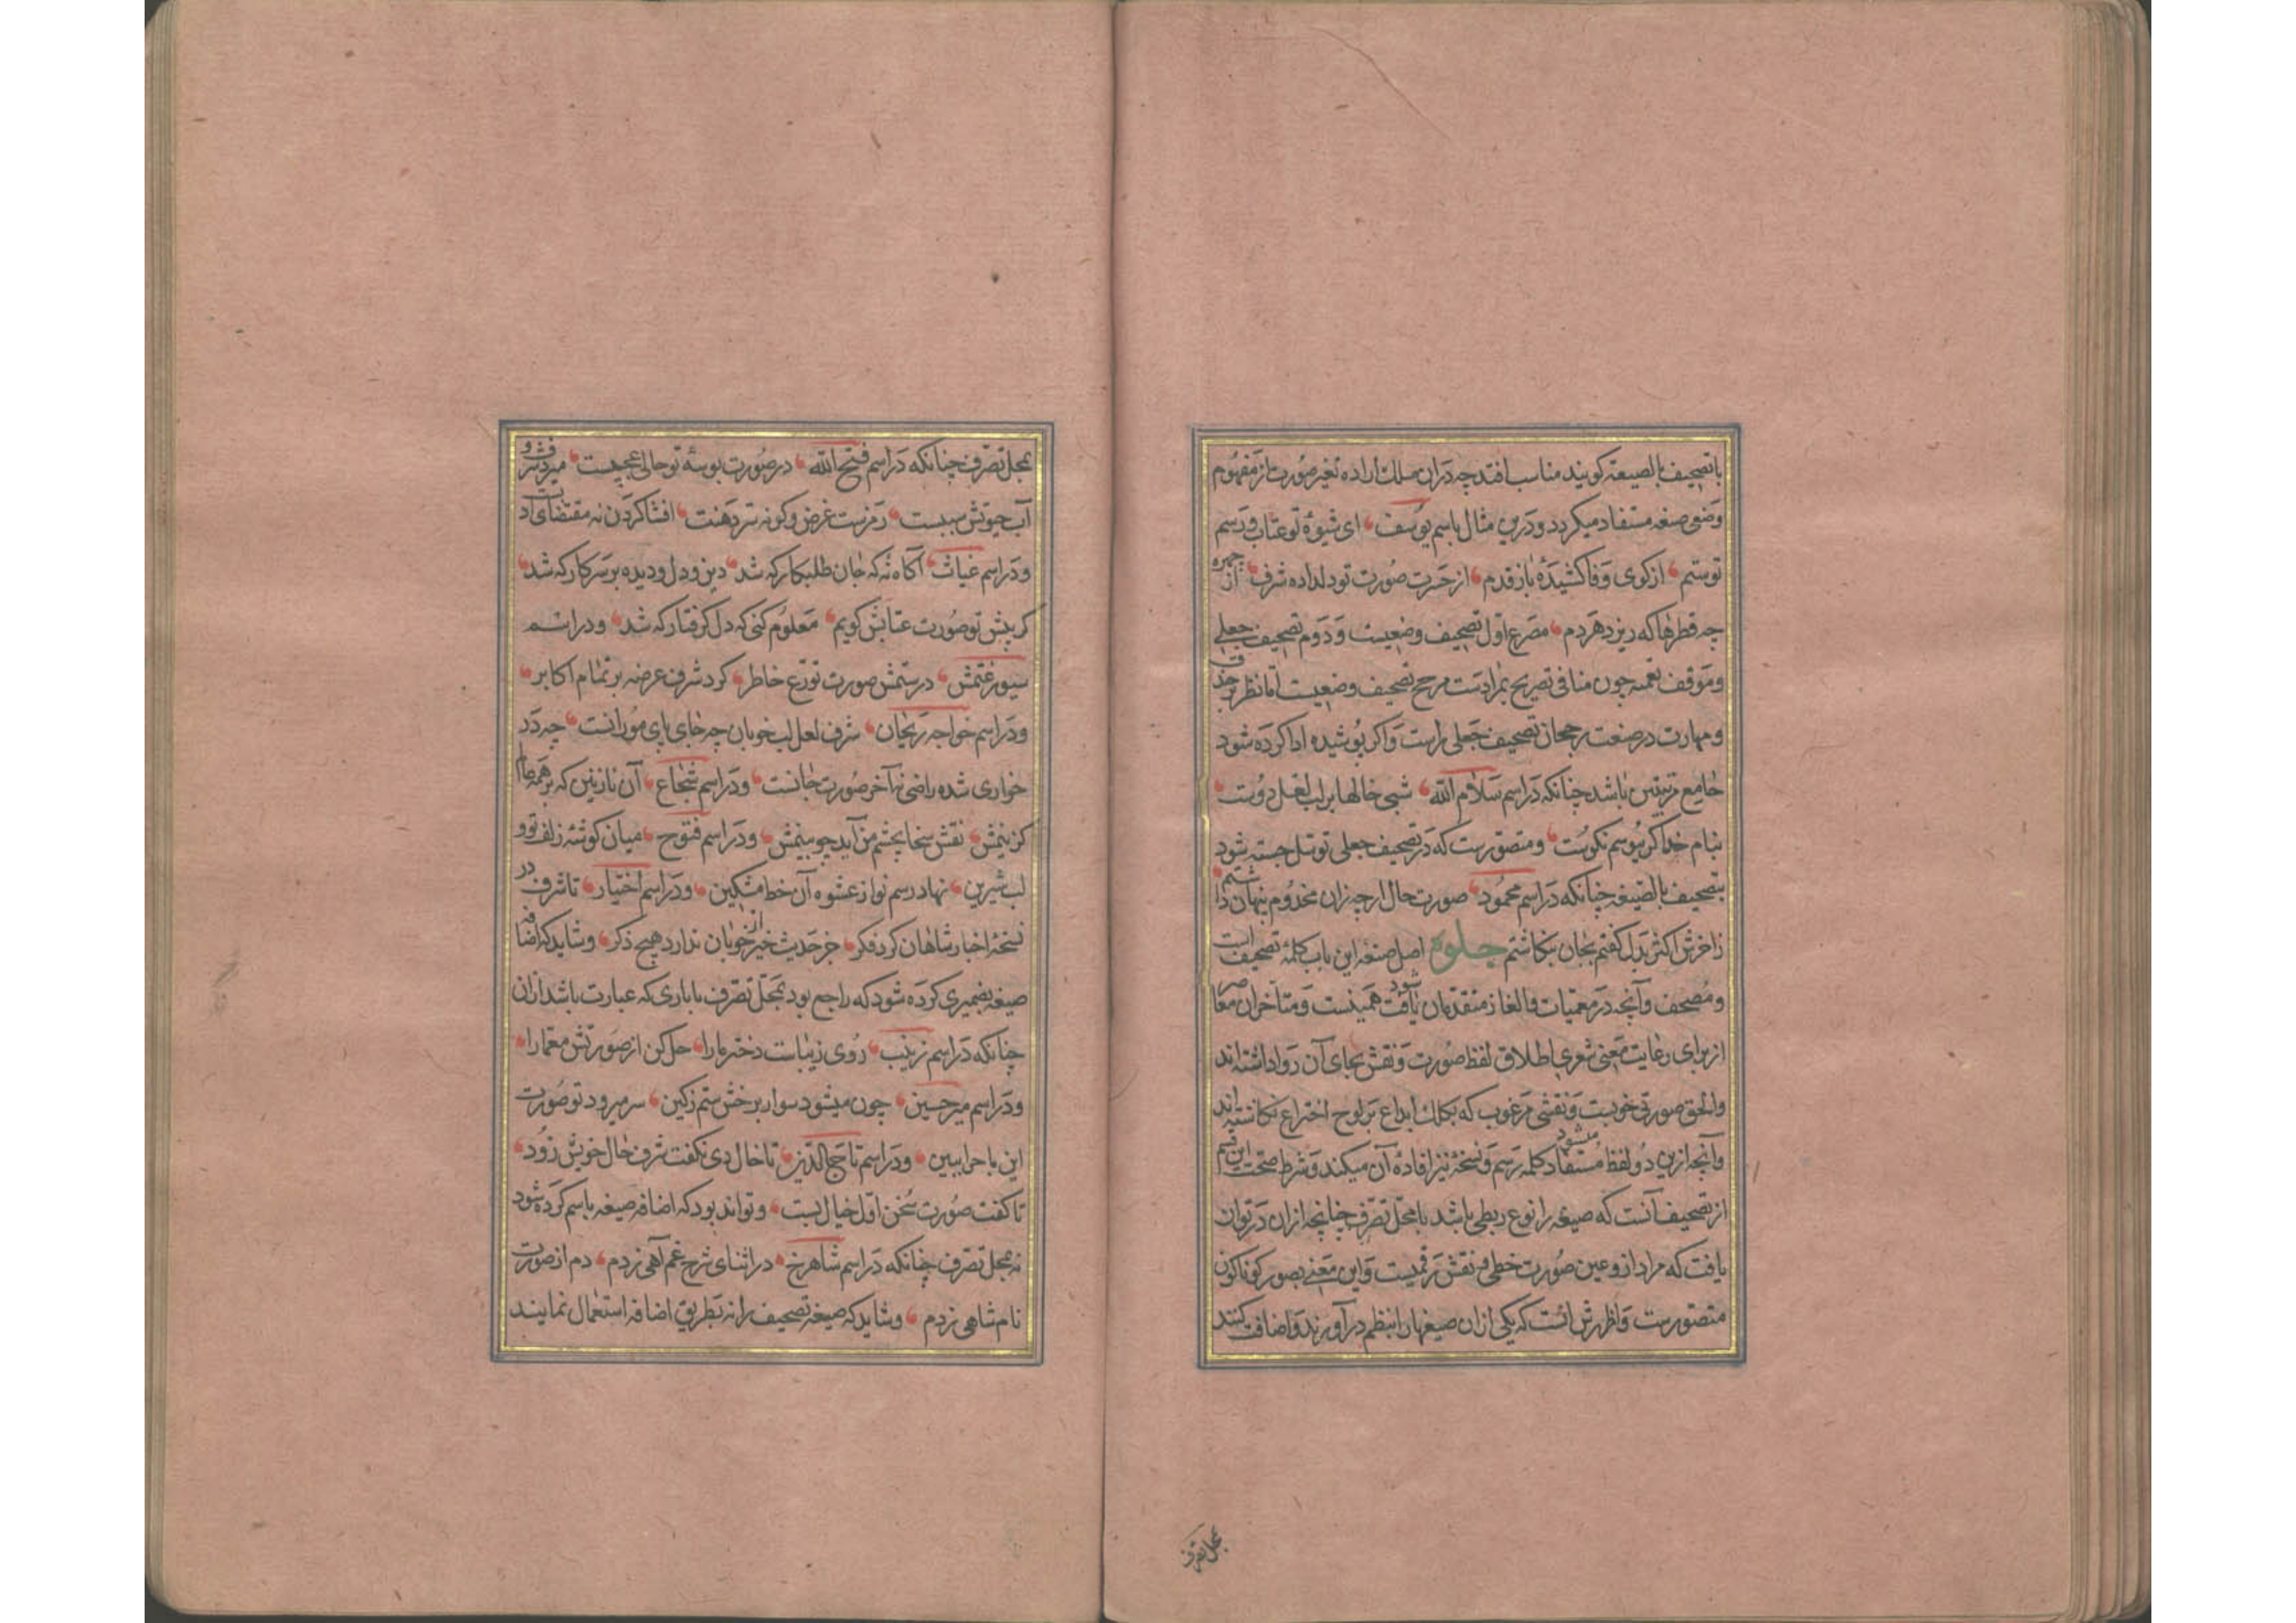 باتصحیف بالصیغه کویند مناسب افتد چه دران مسلك اراده تغیر صورت از مفهوم
وضعی صیغه مستفاد میکردد ودرین مثال باسم یوسف ای شیوۀ تو عتاب ورسم
تو ستم از کوی وفا کشیدۀ باز قدم از حسرت صورت تو دلداده شرف از
چه قطرها که ریزد هر دم مصرع اول تصحیف وضعیست ودوم تصحیف جعلی
وموقف تعمیه چون منافی تصریح بمرادست مرجح تصحیف وضعیست اما نظر بر
ومهارت در صنعت رجحان تصحیف جعلی راست واکر پوشیده ادا کرده شود
جامع مزیتین باشد چنانکه در اسم سلام الله شبی خالها بر لب لعل دوست
بنام خدا کر ببوسم نکوست ومتصورست که در تصحیف جعلی توسل جسته شود
بتصحیف بالصیغه چنانکه در اسم محمود صورت حال ارچه زان مخدوم پنهان داشتم
زاخرش اکثر بدل کفتم بجان بنکاشتم جلوه اصل صیغه این باب کلمۀ تصحیف است
ومصحف وآنچه در معمیات والغاز متقدمان یافت شود همینست ومتاخران معاصر
از برای رعایت معنی شعری اطلاق لفظ صورت ونقش بجای آن روا داشته اند
والحق صورتی خوبست ونقشی مرغوب که بکلك ابداع بر لوح اختراع نکاشته اند
وآنچه ازین دو لفظ مستفاد میشود کلمه رسم ونسخه نیز افادۀ آن میکند وشرط صحت این قسم
از تصحیف آنست که صیغه را نوع ربطی باشد بامحل تصرف چنانچه ازان در توان
یافت که مراد ازو عین صورت خطی ونقش رقمیست واین معنی بصور کوناکون
متصورست واظهرش آنست که یکی ازان صیغها را بنظم در آورند واضافت کنند
بمحل تصرف
بمحل تصرف چنانکه در اسم فتح الله در صورت بوسۀ تو حالی عجبیست
آب حیوتش سببست رمزیست غرض وکونه سر دهنت افشا کردن نه مقتضای ادبست
ودر اسم غیاث آکاه نۀ که جان طلبکار که شد دین ودل ودیده بر سر کار که شد
کر پیش تو صورت عتابش کویم معلوم کنی که دل کرفتار که شد ودر اسم
سیورغتمش در ستمش صورت تورع خاطر کرد شرف عرضه بر تمام اکابر
ودر اسم خواجه ریحان شرف لعل لب خوبان چه جای پای مورانست چه در
خواری شده راضی نه آخر صورت جانست ودر اسم شجاع آن نازنین که بر همه
کزینمش نقش سخا بچشم من آید چو بینمش ودر اسم فتوح میان کوشۀ زلف تو و
لب شیرین نهاد رسم نو از عشوه آن خط مشکین ودر اسم اختیار تا شرف در
نسخۀ اخبار شاهان کرد فکر جز حدیث خیر خوبان ندارد هیچ ذکر وشاید که اضافه
صیغه بضمیری کرده شود که راجع بود بمحل تصرف یا باری که عبارت باشد ازان
چنانکه در اسم زینب روی زیباست دختر ما را حل کن از صورتش معما را
ودر اسم میر حسین چون میشود سوار بر خش ستم زکین سر میرود تو صورت
این ماجرا ببین ودر اسم تاج الدین تا خال دی نکفت شرف حال خویش زود
تا کفت صورت سخن اول خیال بست وتواند بود که اضافه صیغه باسم کرده شود
نه بمحل تصرف چنانکه در اسم شاهرخ در اثنای شرح غم آهی زدم دم از صورت
نام شاهی زدم وشاید که صیغه تصحیف را نه بطریق اضافه استعمال نمایند